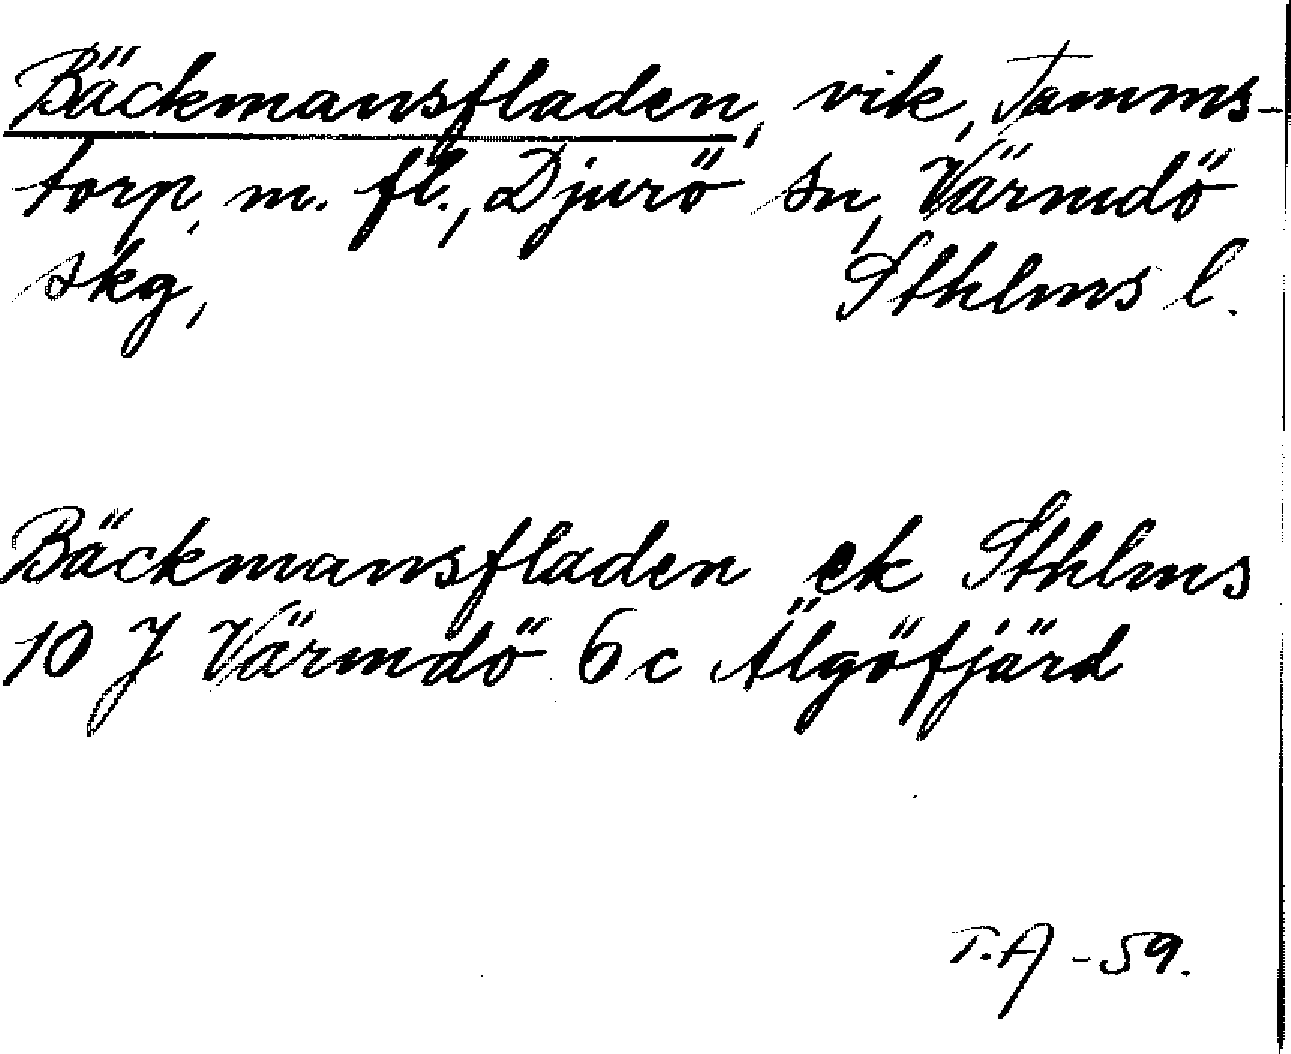 Bäckmansfladen, vik, Tamms-
torp, m. fl., Djurö sn, Värmdö
skg, Sthlms l.
Bäckmansfladen ek Sthlms
10 J Värmdö 6 c Älgöfjärd
T.A -59.